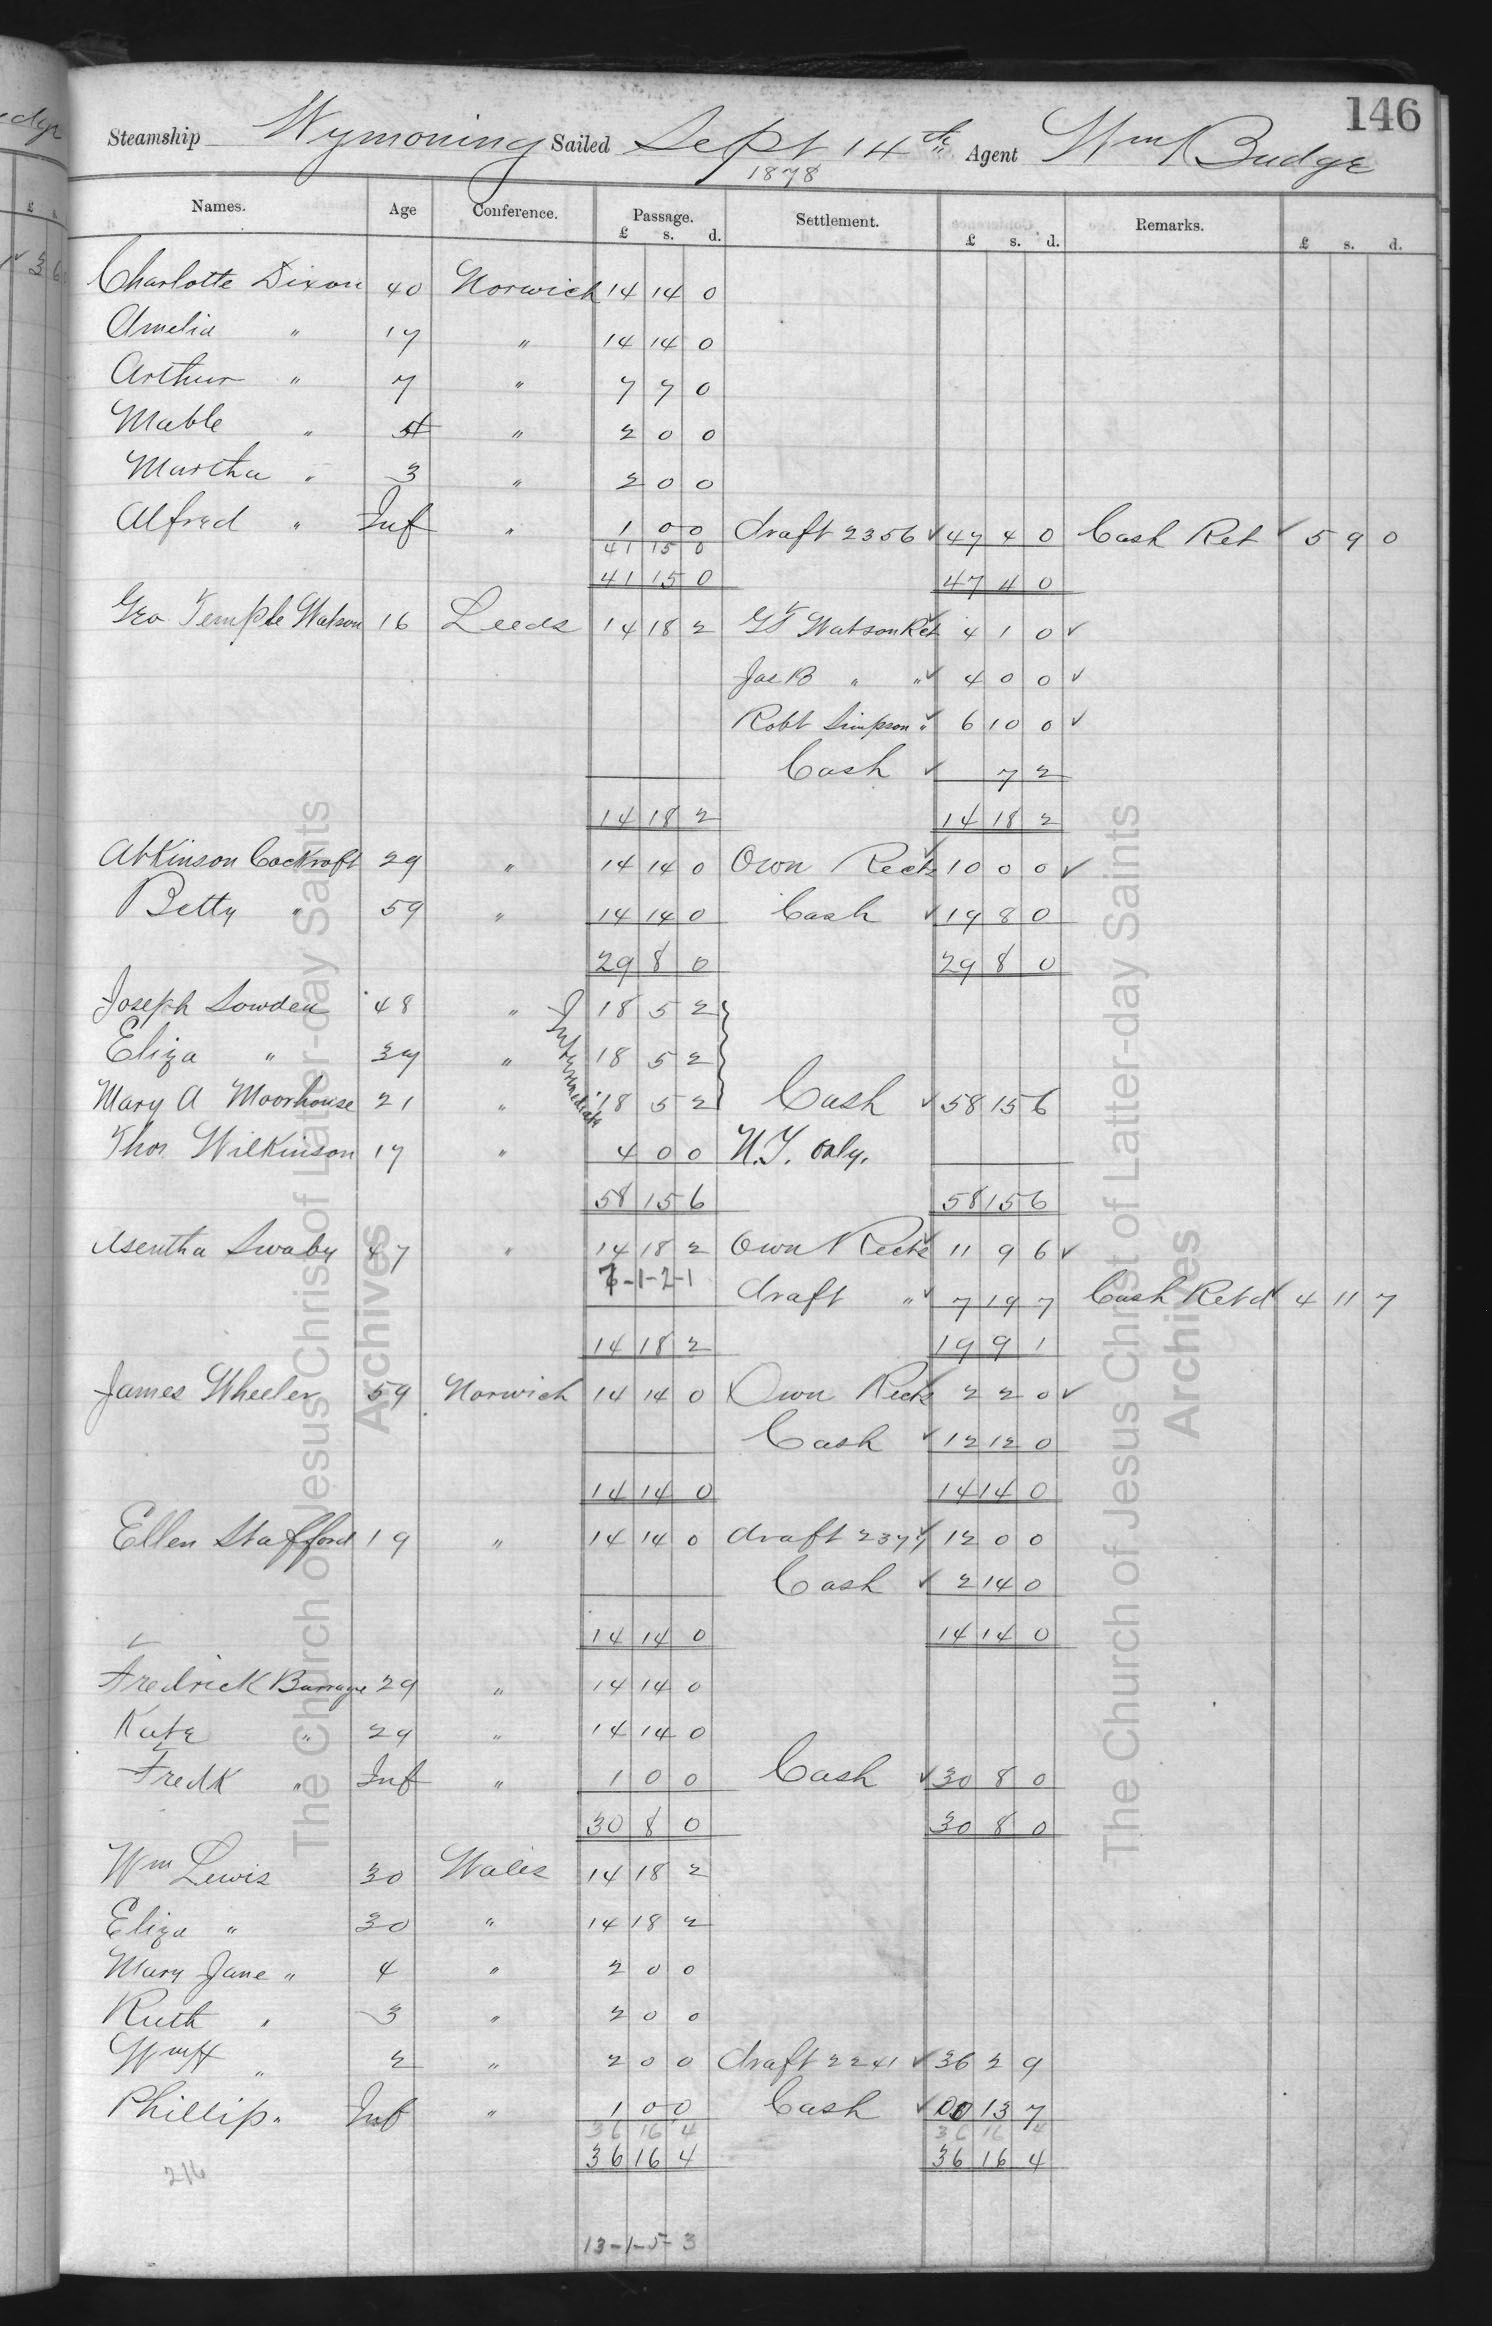 146
Steamship Wymoning Sailed Sept 14th Agent Wm Budge
1878
Names. Age Conference. Passage. Settlement. Remarks.
£ s. d. £ s. d. £ s. d.
Charlotte Dixon 40 Norwich 14 14 0
Amelia " 17 " 14 14 0
Arthur " 7 " 7 7 0
Mable " "  2 0 0
Martha " 3 " 2 0 0
Alfred " Inf " 1 0 0 draft 2356 ✓ 47 4 0 Cash Ret ✓ 5 9 0
41 15 0
41 15 0 47 4 0
Geo Temple Watson 16 Leeds 14 18 2 GT Watson Ret ✓ 4 1 0 ✓
Jas B " " ✓ 4 0 0 ✓
Robt Simpson " ✓ 6 10 0 ✓
Cash ✓ 7 2
14 18 2 14 18 2
Atkinson Cockroft 29 " 14 14 0 Own Rects ✓ 10 0 0 ✓
Betty " 59 " 14 14 0 Cash ✓ 19 8 0
29 8 0 29 8 0
Joseph Sowden 48 " Intermediate 18 5 2
Eliza " 37 " 18 5 2
Mary A Moorhouse 21 " 18 5 2 Cash ✓ 58 15 6
Thos Wilkinson 17 " 4 0 0 N.Y. only.
58 15 6 58 15 6
Asentha Swaby 47 " 14 18 2 Own Rects ✓ 11 9 6 ✓
-1-2-1 draft " ✓ 7 19 7 Cash Retd ✓ 4 11 7
14 18 2 19 9 1
James Wheeler 59 Norwich 14 14 0 Own Rects ✓ 2 2 0 ✓
Cash ✓ 12 12 0
14 14 0 14 14 0
Ellen Stafford 19 " 14 14 0 draft 2377 ✓ 12 0 0
Cash ✓ 2 14 0
14 14 0 14 14 0
Fredrick Burrage 29 " 14 14 0
Kate " 29 " 14 14 0
Fredk " Inf " 1 0 0 Cash ✓ 30 8 0
30 8 0 30 8 0
Wm Lewis 30 Wales 14 18 2
Eliza " 30 " 14 18 2
Mary Jane " 4 " 2 0 0
Ruth " 3 " 2 0 0
Wm H " 2 " 2 0 0 draft 2241 ✓ 36 2 9
Phillip " Inf " 1 0 0 Cash ✓ 00 13 7
36 16 4 36 16 4
36 16 4 36 16 4
216
13-1-5-3
The Church of Jesus Christ of Latter-day Saints
Archives
The Church of Jesus Christ of Latter-day Saints
Archives